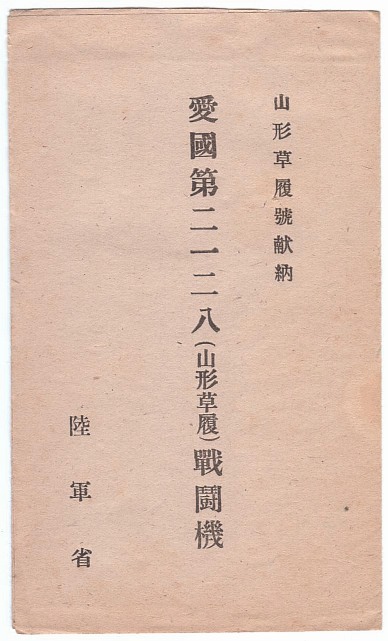 山形草履號献納
愛國第二一二八(山形草履)戰鬪機
陸軍省